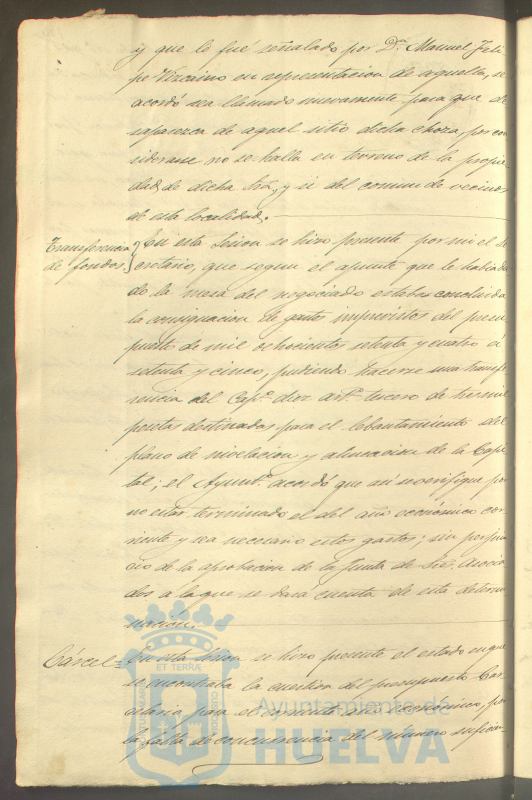 y que le fué señalado por Dn. Manuel Feli
pe Vizcaino en representacion de aquella, se
acordó sea llamado nuevamente para que de
saparezca de aquel sitio dicha choza, por con
siderarse no se halla en terreno de la propie
dad de dicha Sra, y si del comun de vecinos
de esta localidad.
Transferencia de fondos. } En esta Sesion se hizo presente por mi el Se
cretario, que segun el apunte que le habia da
do la mesa del negociado estaba concluida
la consignacion de gastos imprevistos del presu
puesto de mil ochocientos setenta y cuatro á
setenta y cinco, pudiendo hacerse una transfe
rencia del Capº. diez artº. tercero de tres mil
pesetas destinadas para el lebantamiento del
plano de nivelacion y alineacion de la Capi
tal; el Ayuntº. acordó que asi se verifique por
no estar terminado el del año económico cor
riente y sea necesario estos gastos; sin perjui
cio de la aprobacion de la Junta de Sres. Asocia
dos a la que se dara cuenta de esta determi
nacion.
Cárcel = En esta Sesion se hizo presente el estado en que
se encontraba la cuestion del presupuesto Car
celario para el corriente año económico, por
la falta de concurrencia del número suficien-
ET TERRAE
Ayuntamiento de
HUELVA